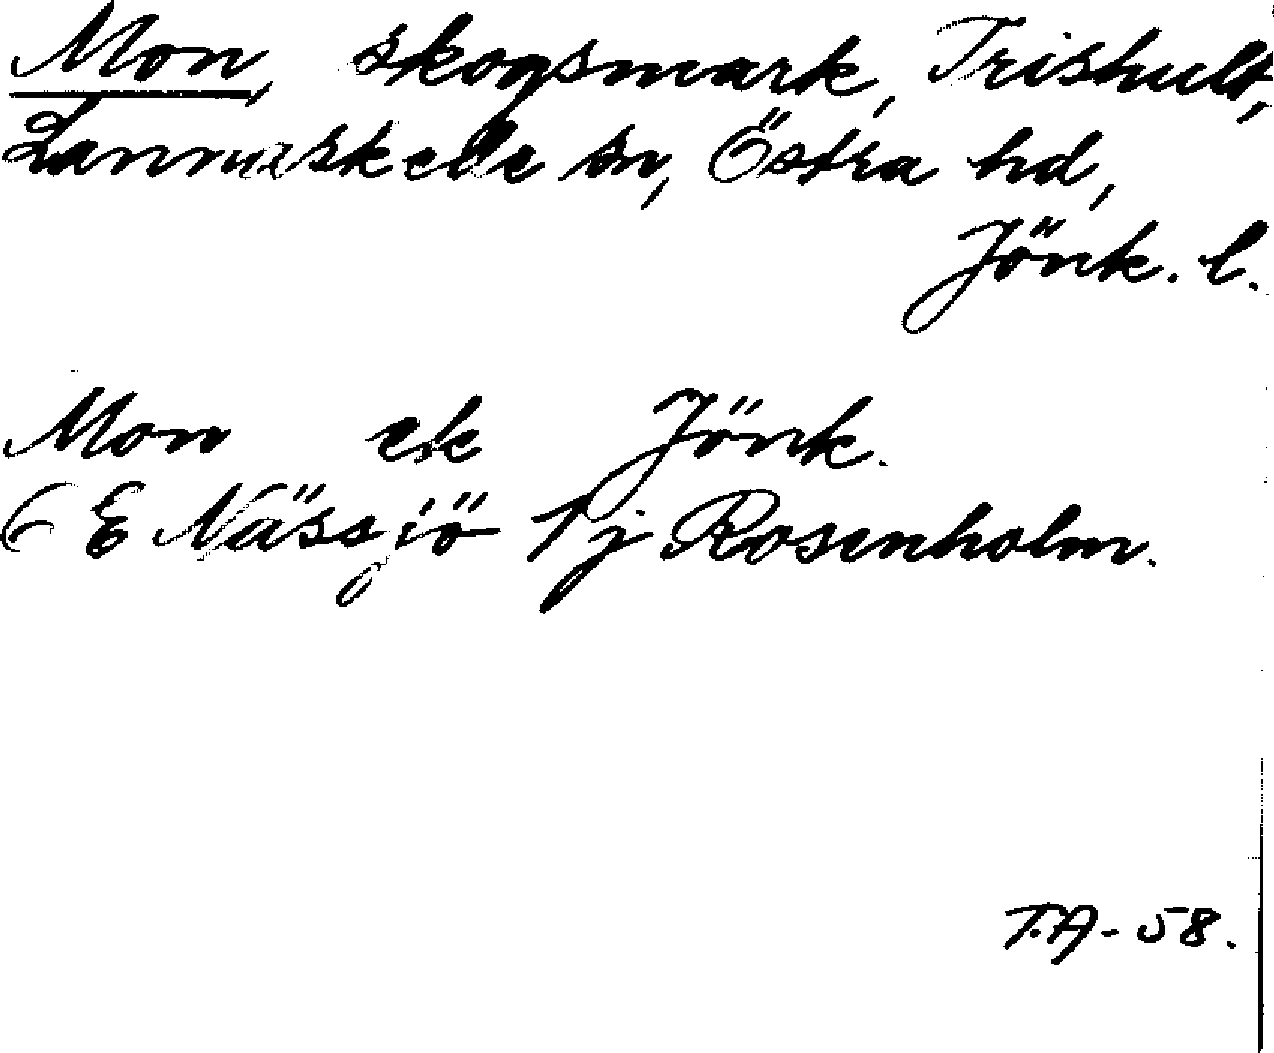 Mon, skogsmark, Trishult,
Lannaskede sn, Östra hd,
Jönk. l.
Mon ek Jönk.
6 E Nässjö 1 j Rosenholm.
T.A-58.